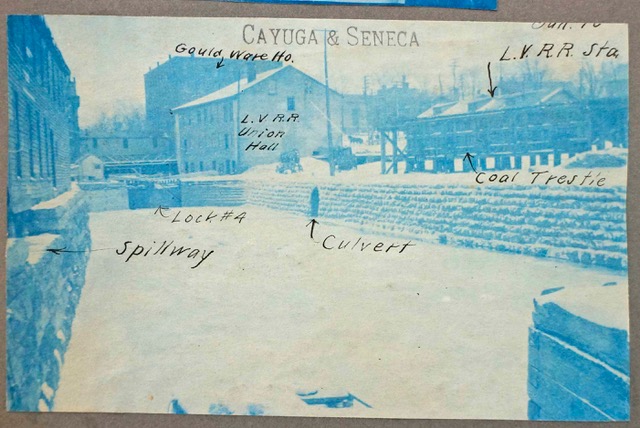 CAYUGA & SENECA
Gould Ware Ho.
L.V. R.R. Sta
L.V R.R.
Union
Hall
Coal Trestle
Lock #4
Culvert
Spillway